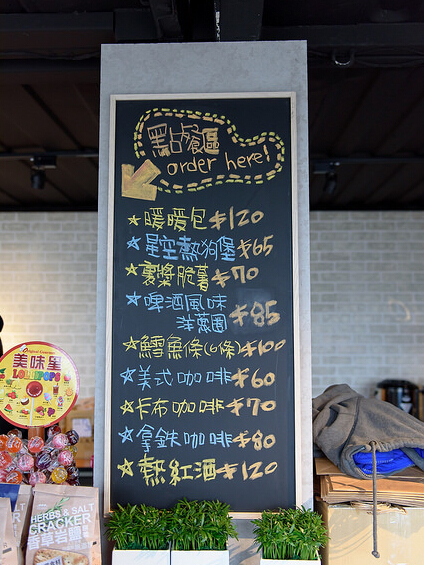 點餐區
order here!
★暖暖包$120
★星空熱狗堡$65
★裹漿脆薯$70
★啤酒風味
洋蔥圈$85
★鱈魚條(6條)$100
★美式咖啡$60
★卡布咖啡$70
★拿鉄咖啡$80
★熱紅酒$120
美味星
LOLLIPOPS
HERBS & SALT
CRACKER
香草岩鹽